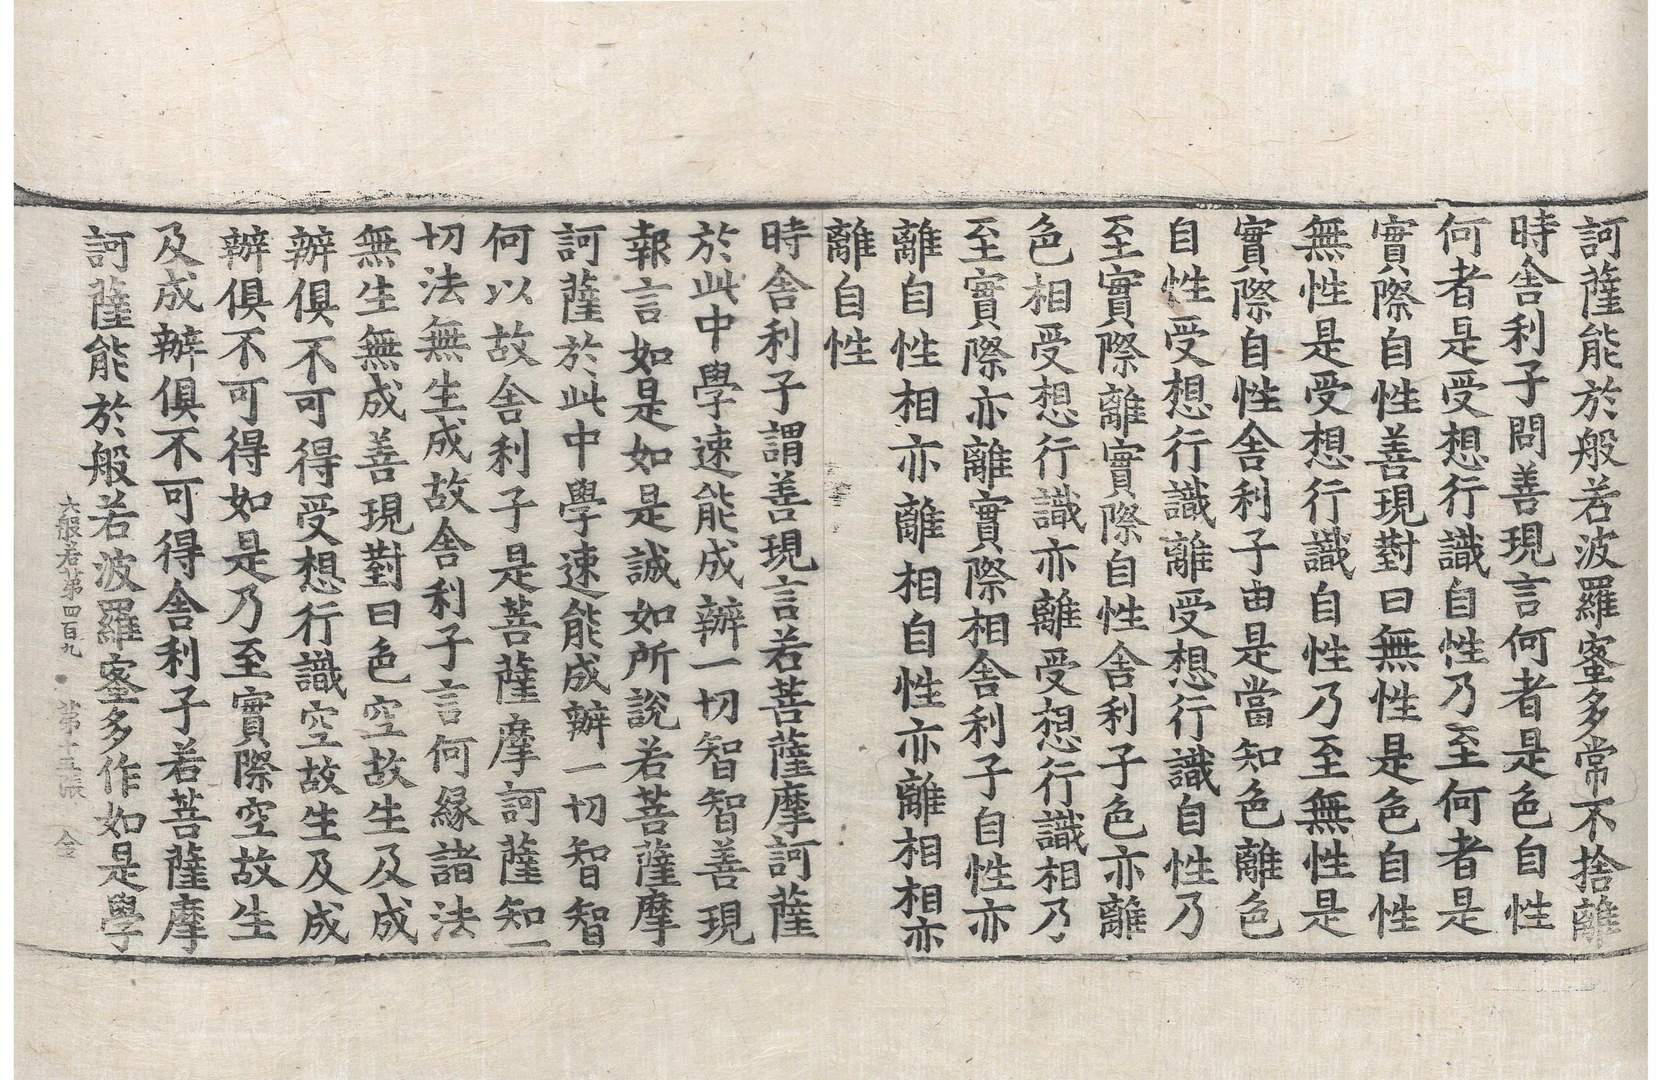 訶薩能於般若波羅蜜多常不捨離
時舍利子問善現言何者是色自性
何者是受想行識自性乃至何者是
實際自性善現對曰無性是色自性
無性是受想行識自性乃至無性是
實際自性舍利子由是當知色離色
自性受想行識離受想行識自性乃
至實際離實際自性舍利子色亦離
色相受想行識亦離受想行識相乃
至實際亦離實際相舍利子自性亦
離自性相亦離相自性亦離相相亦
離自性
時舍利子謂善現言若菩薩摩訶薩
於此中學速能成辦一切智智善現
報言如是如是誠如所說若菩薩摩
訶薩於此中學速能成辦一切智智
何以故舍利子是菩薩摩訶薩知一
切法無生成故舍利子言何緣諸法
無生無成善現對曰色空故生及成
辦俱不可得受想行識空故生及成
辦俱不可得如是乃至實際空故生
及成辦俱不可得舍利子若菩薩摩
訶薩能於般若波羅蜜多作如是學
大般若第四百九 第十五張 金